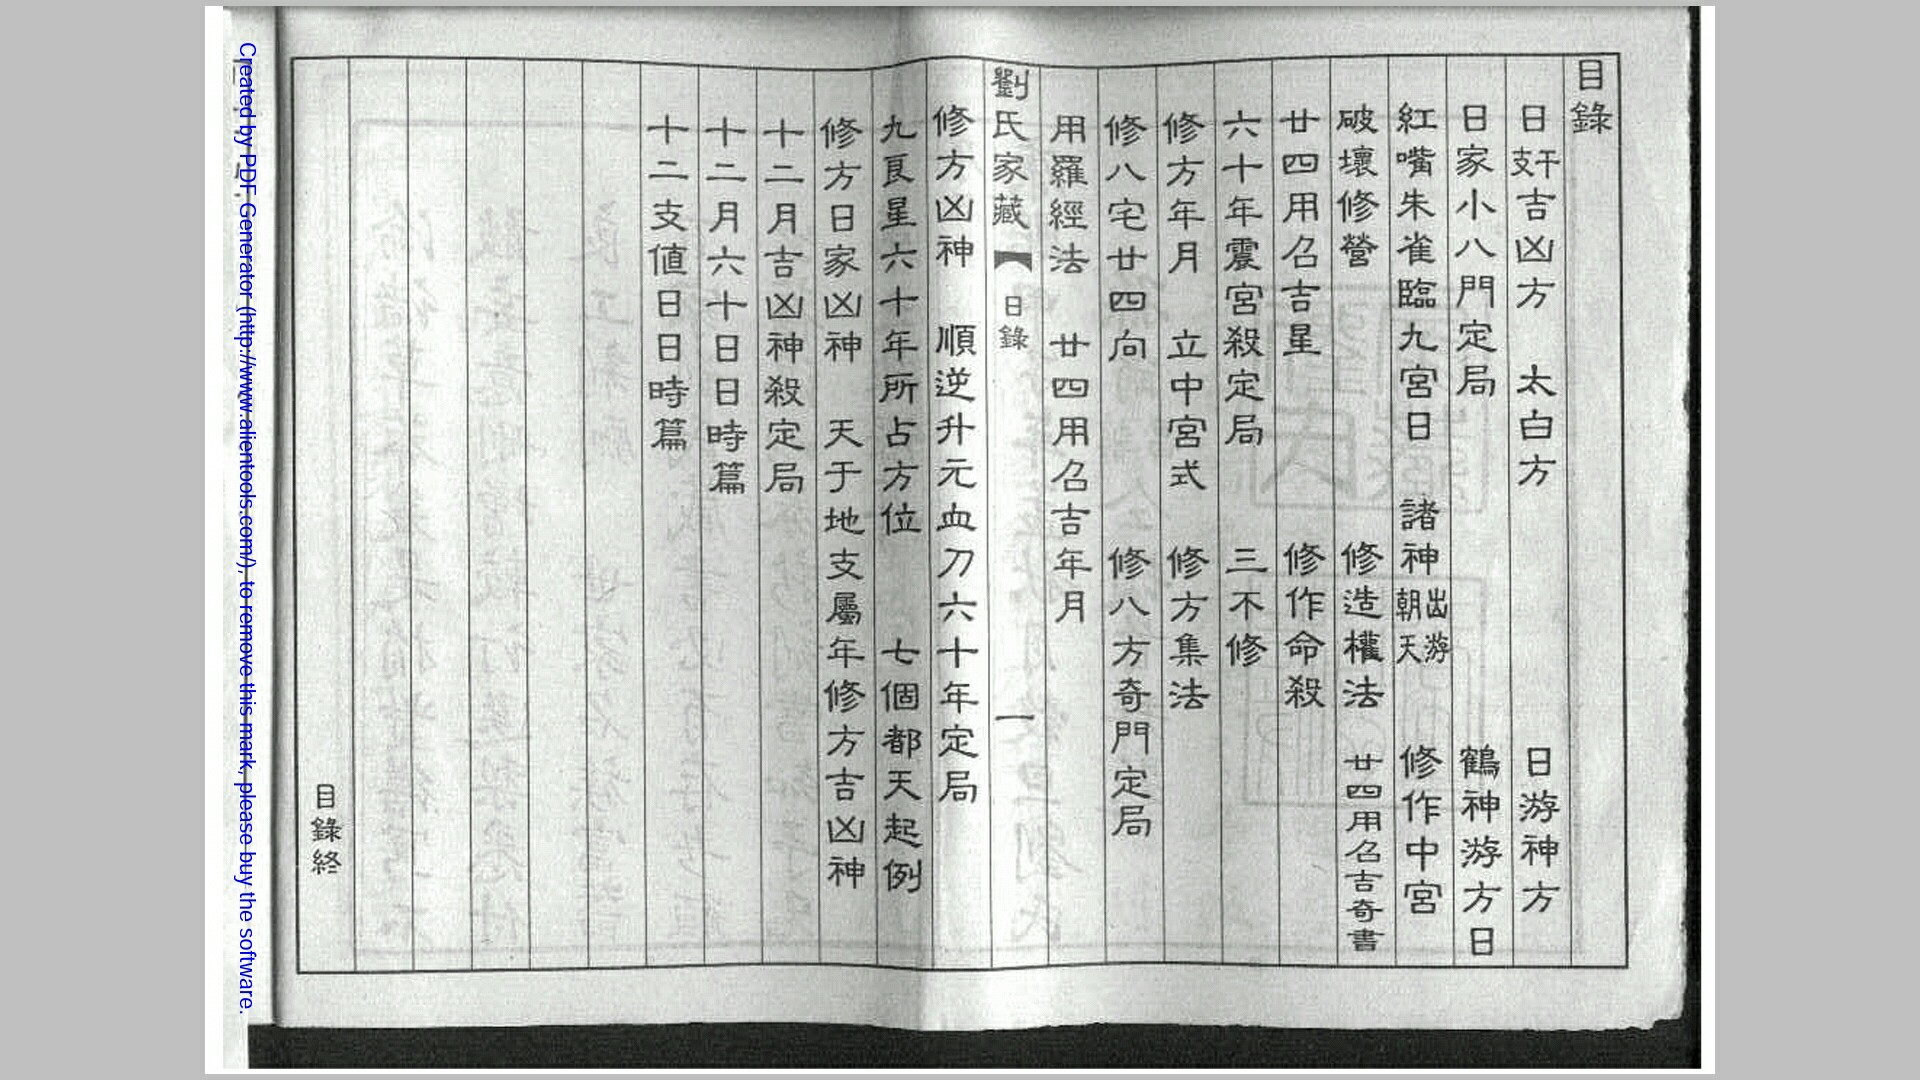 目錄
日干支吉凶方　太白方　日游神方
日家小八門定局　鶴神游方日
紅嘴朱雀臨九宮日　諸神出游朝天　修作中宮
破壞修營　修造權法　廿四用召吉奇書
廿四用召吉星　修作命殺
六十年震宮殺定局　三不修
修方年月　立中宮式　修方集法
修八宅廿四向　修八方奇門定局
用羅經法　廿四用召吉年月
劉氏家藏　目錄　一
修方凶神　順逆升元血刀六十年定局
九艮星六十年所占方位　七個都天起例
修方日家凶神　天于地支屬年修方吉凶神
十二月吉凶神殺定局
十二月六十日日時篇
十二支値日日時篇
目錄終
Created by PDF Generator (http://www.alientools.com/), to remove this mark, please buy the software.